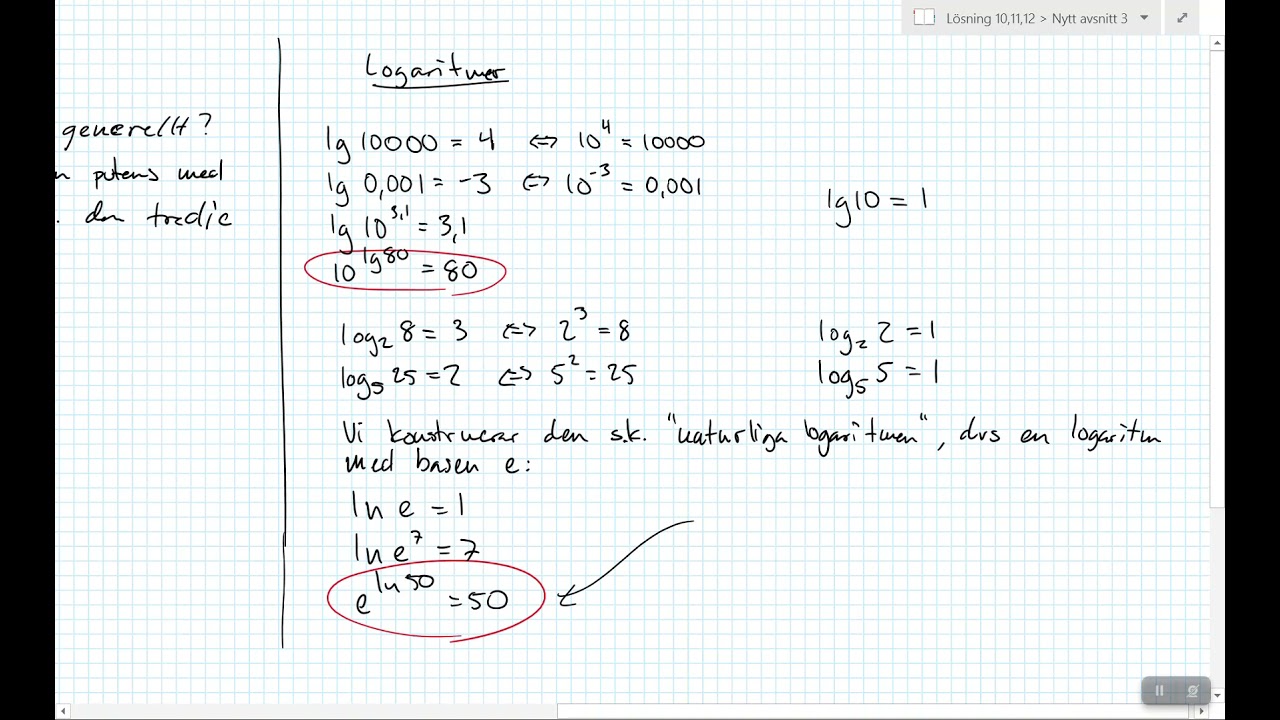 Lösning 10,11,12 > Nytt avsnitt 3
generellt?
n potens med
. den tredje
Logaritmer
lg 10000 = 4 ⇔ 10⁴ = 10000
lg 0,001 = -3 ⇔ 10⁻³ = 0,001
lg 10^3,1 = 3,1
10^lg80 = 80
lg 10 = 1
log₂ 8 = 3 ⇔ 2³ = 8
log₅ 25 = 2 ⇔ 5² = 25
log₂ 2 = 1
log₅ 5 = 1
Vi konstruerar den s.k. "naturliga logaritmen", dvs en logaritm
med basen e:
ln e = 1
ln e⁷ = 7
e^ln50 = 50